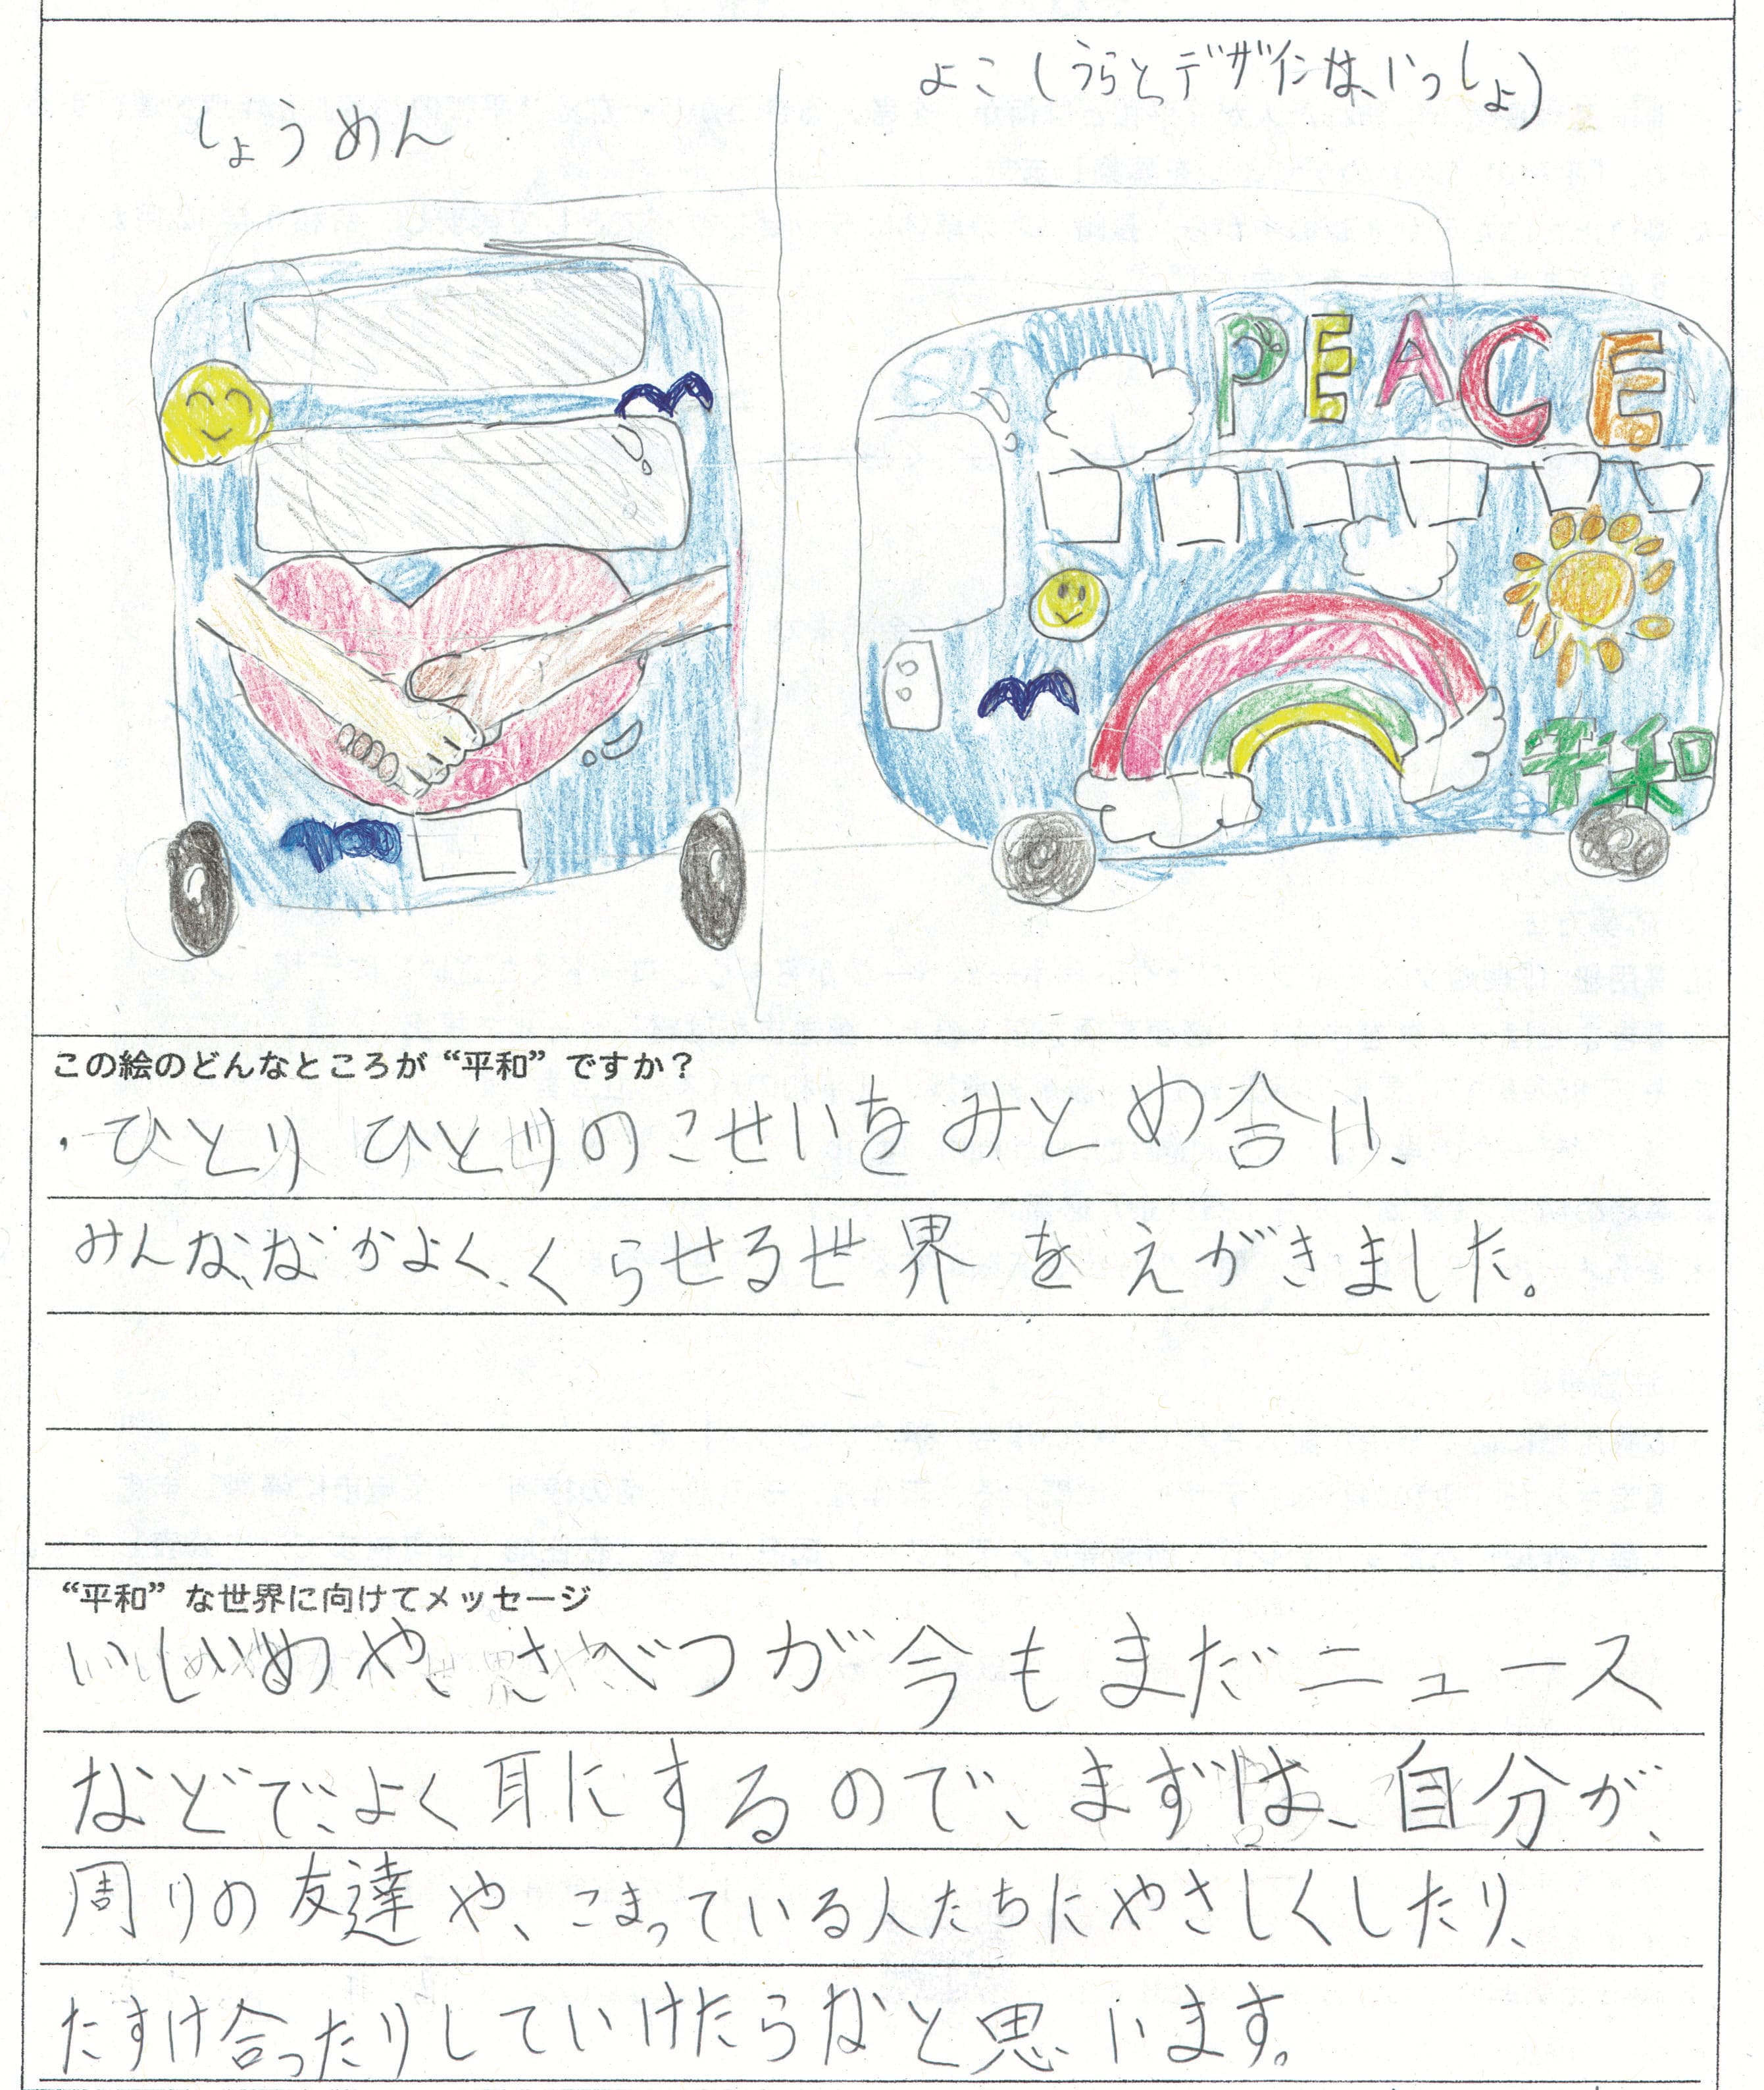 しょうめん
よこ(うらとデザインは、いっしょ)
PEACE
平和
この絵のどんなところが“平和”ですか?
・ひとりひとりのこせいをみとめ合い、
みんな、なかよく、くらせる世界をえがきました。
“平和”な世界に向けてメッセージ
いじめや、さべつが今もまだニュース
などで、よく耳にするので、まずは、自分が、
周りの友達や、こまっている人たちにやさしくしたり、
たすけ合ったりしていけたらなと思います。